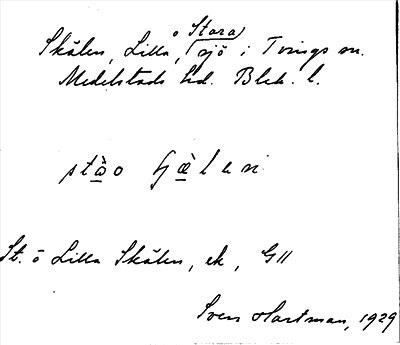 Skålen, Lilla, o Stora, sjö i Tvings sn.
Medelstads hd. Blek. l.
stào
St. o Lilla Skålen, ek, G11
Sven Hartman, 1929